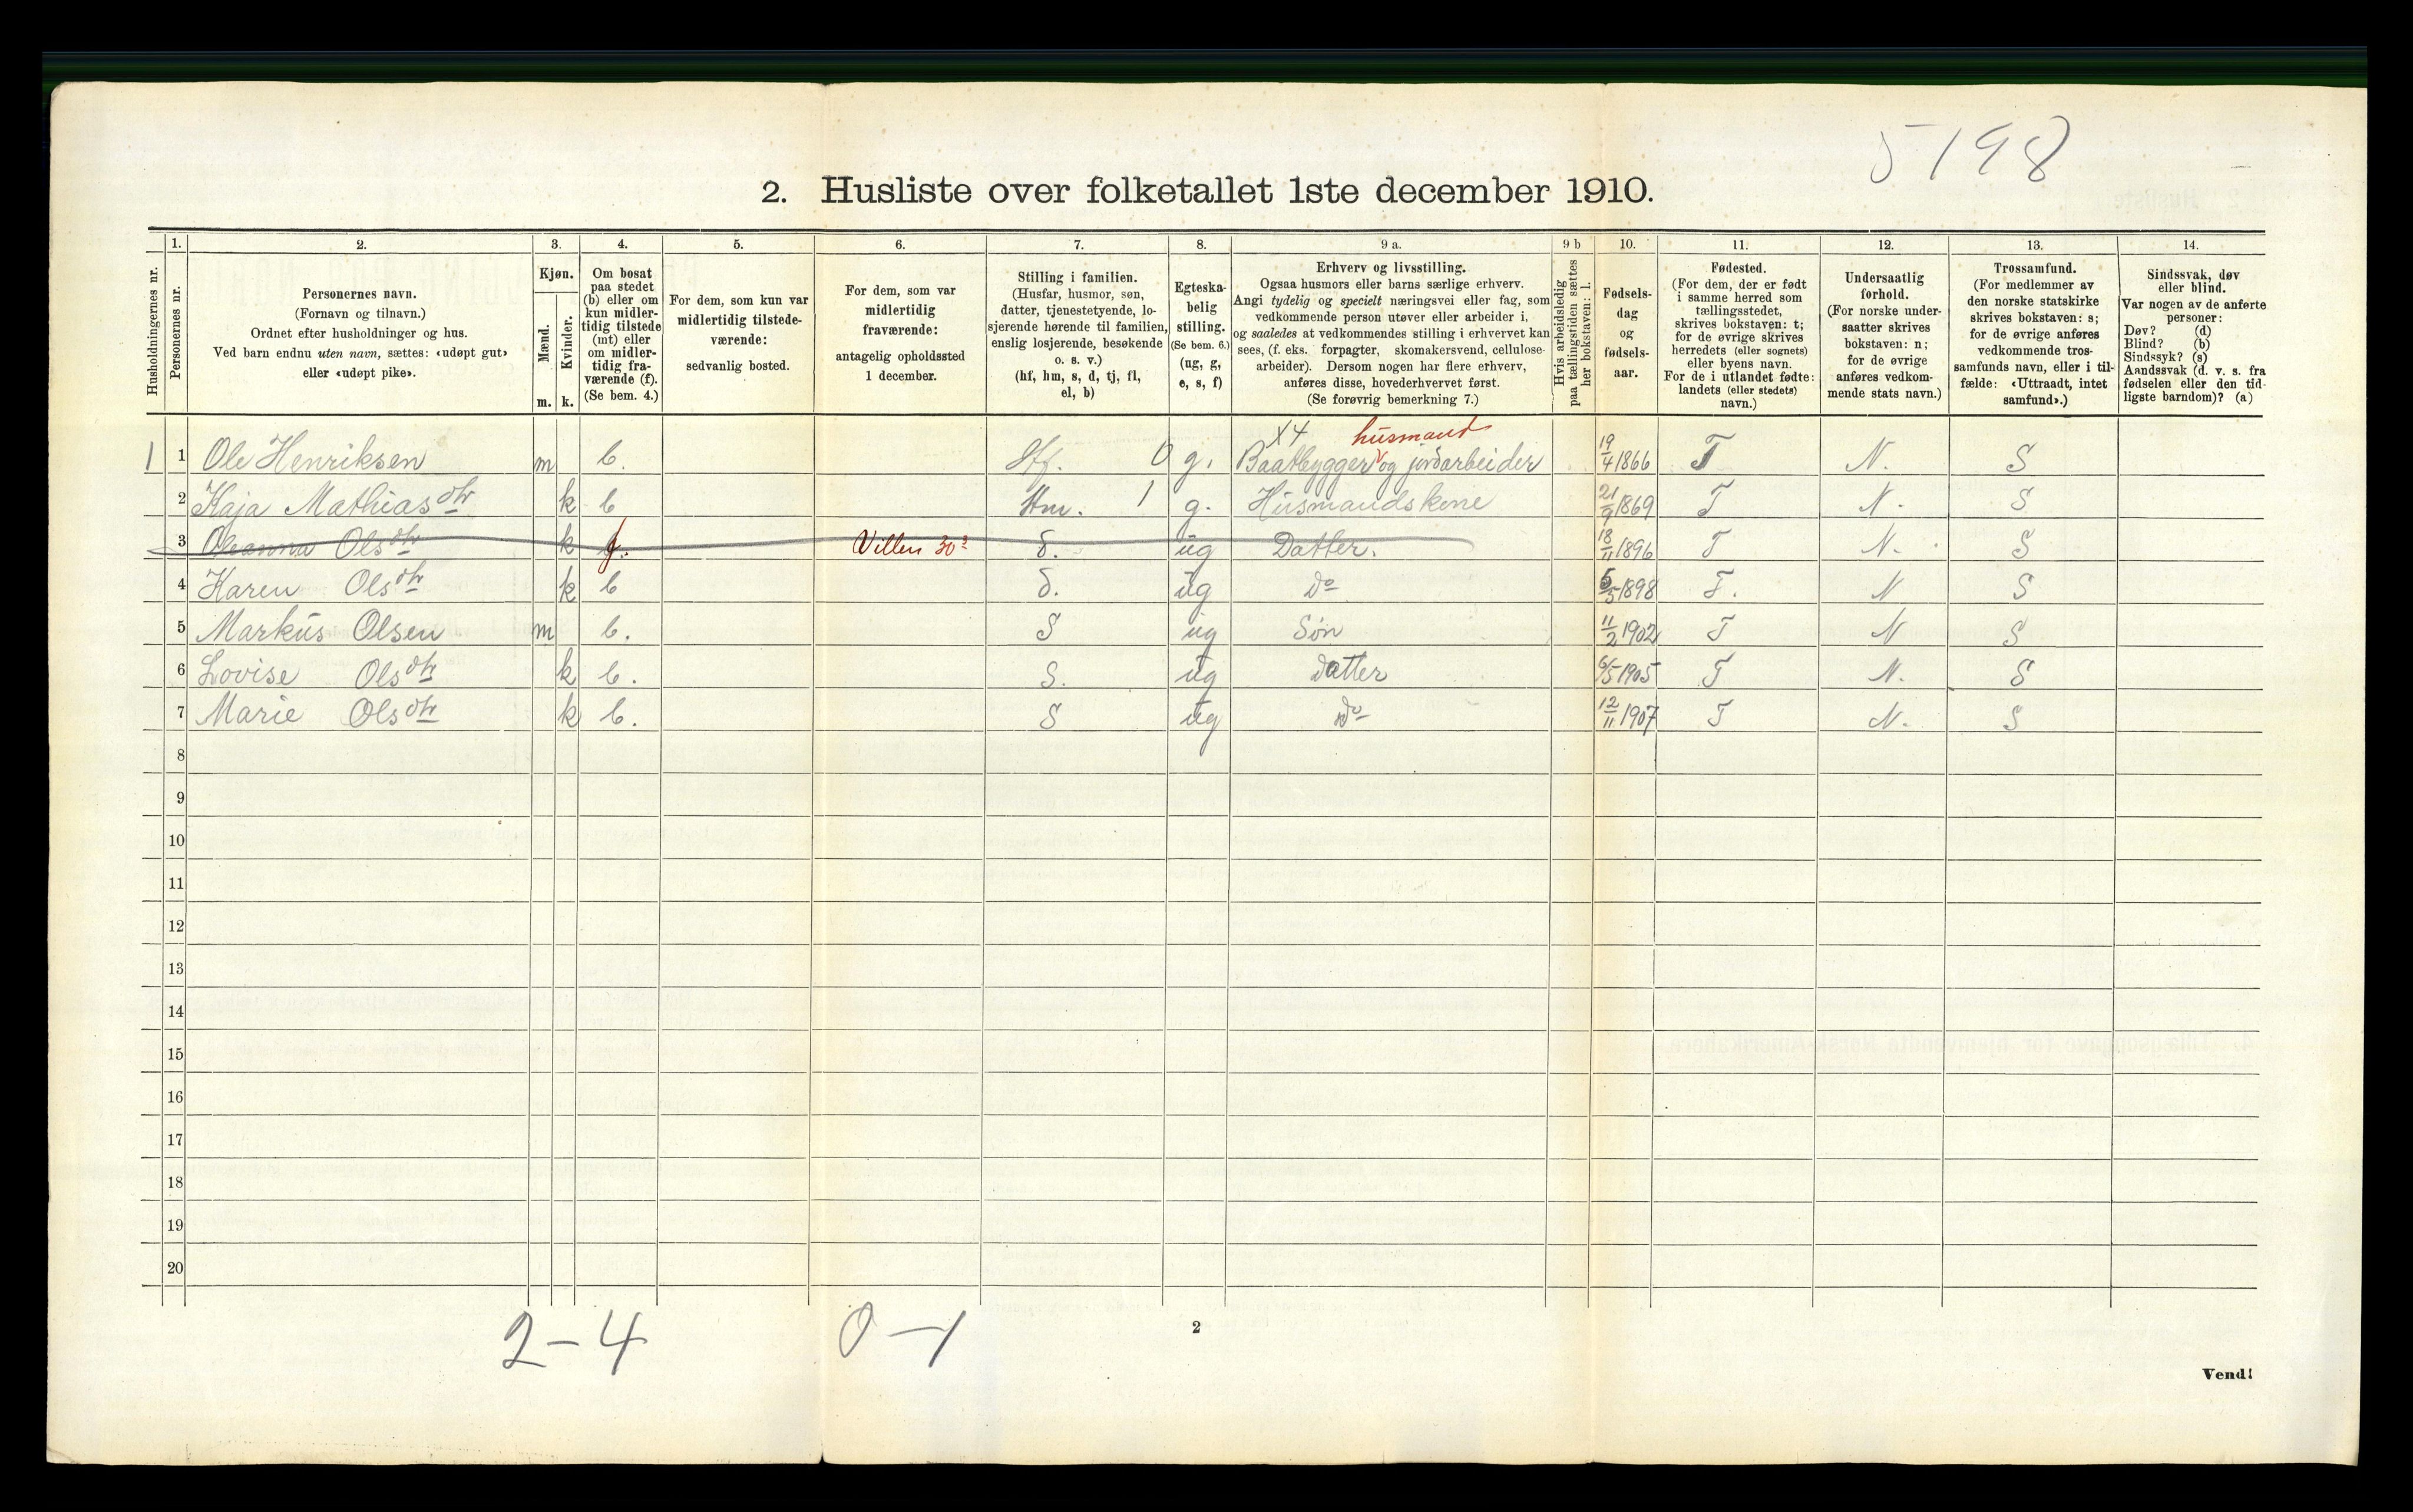 5198
2. Husliste over folketallet 1ste december 1910.
Husholdningernes nr.
1.
Personernes nr.
2.
Personernes navn.
(Fornavn og tilnavn.)
Ordnet efter husholdninger og hus.
Ved barn endnu uten navn, sættes: «udøpt gut»
eller «udøpt pike».
3.
Kjøn.
Mænd.
Kvinder.
m. k.
4.
Om bosat
paa stedet
(b) eller om
kun midler-
tidig tilstede
(mt) eller
om midler-
tidig fra-
værende (f).
(Se bem. 4.)
5.
For dem, som kun var
midlertidig tilstede-
værende:
sedvanlig bosted.
6.
For dem, som var
midlertidig
fraværende:
antagelig opholdssted
1 december.
7.
Stilling i familien.
(Husfar, husmor, søn,
datter, tjenestetyende, lo-
sjerende hørende til familien,
enslig losjerende, besøkende
o. s. v.)
(hf, hm, s, d, tj, fl,
el, b)
8.
Egteska-
belig
stilling.
(Se bem. 6.)
(ug, g,
e, s, f)
9 a.
Erhverv og livsstilling.
Ogsaa husmors eller barns særlige erhverv.
Angi tydelig og specielt næringsvei eller fag, som
vedkommende person utøver eller arbeider i,
og saaledes at vedkommendes stilling i erhvervet kan
sees, (f. eks. forpagter, skomakersvend, cellulose-
arbeider). Dersom nogen har flere erhverv,
anføres disse, hovederhvervet først.
(Se forøvrig bemerkning 7.)
9 b
Hvis arbeidsledig
paa tællingstiden sættes
her bokstaven: l.
10.
Fødsels-
dag
og
fødsels-
aar.
11.
Fødested.
(For dem, der er født
i samme herred som
tællingsstedet,
skrives bokstaven: t;
for de øvrige skrives
herredets (eller sognets)
eller byens navn.
For de i utlandet fødte:
landets (eller stedets)
navn.)
12.
Undersaatlig
forhold.
(For norske under-
saatter skrives
bokstaven: n;
for de øvrige
anføres vedkom-
mende stats navn.)
13.
Trossamfund.
(For medlemmer av
den norske statskirke
skrives bokstaven: s;
for de øvrige anføres
vedkommende tros-
samfunds navn, eller i til-
fælde: «Uttraadt, intet
samfund».)
14.
Sindssvak, døv
eller blind.
Var nogen av de anførte
personer:
Døv? (d)
Blind? (b)
Sindssyk? (s)
Aandssvak (d. v. s. fra
fødselen eller den tid-
ligste barndom)? (a)
X4 husmand
1 1 Ole Henriksen m b. Hf. 0 g. Baatbygger og jordarbeider 19/4 1866 T N. S
2 Kaja Mathiasdtr k b Hm. 1 g. Husmandskone 21/9 1869 T N. S
3 Oleanna Olsdtr k f. d. ug Datter. 18/11 1896 T N. S
4 Karen Olsdtr k b d. ug do 6/5 1898 T. N S
5 Markus Olsen m b. S ug Søn 11/2 1902 T N S
6 Lovise Olsdtr k b. S. ug datter 6/5 1905 T N. S
7 Marie Olsdtr k b. S ug do 12/11 1907 T N. S
8
9
10
11
12
13
14
15
16
17
18
19
20
2-4 0-1
2
Vend!